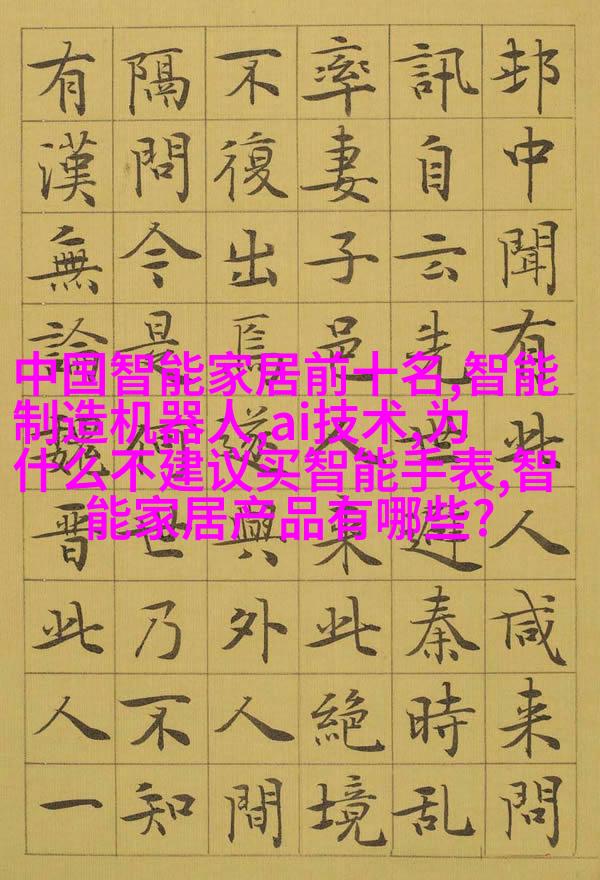 中国智能家居前十名,智能
制造机器人,ai技术,为
什么不建议买智能手表,智
能家居产品有哪些?
邨中聞有此人咸来問
訊自云先世避秦時乱
率妻子邑人来此絶境
不復出焉遂與外人間
隔問今是何世乃不知
有漢無論魏晋此人一